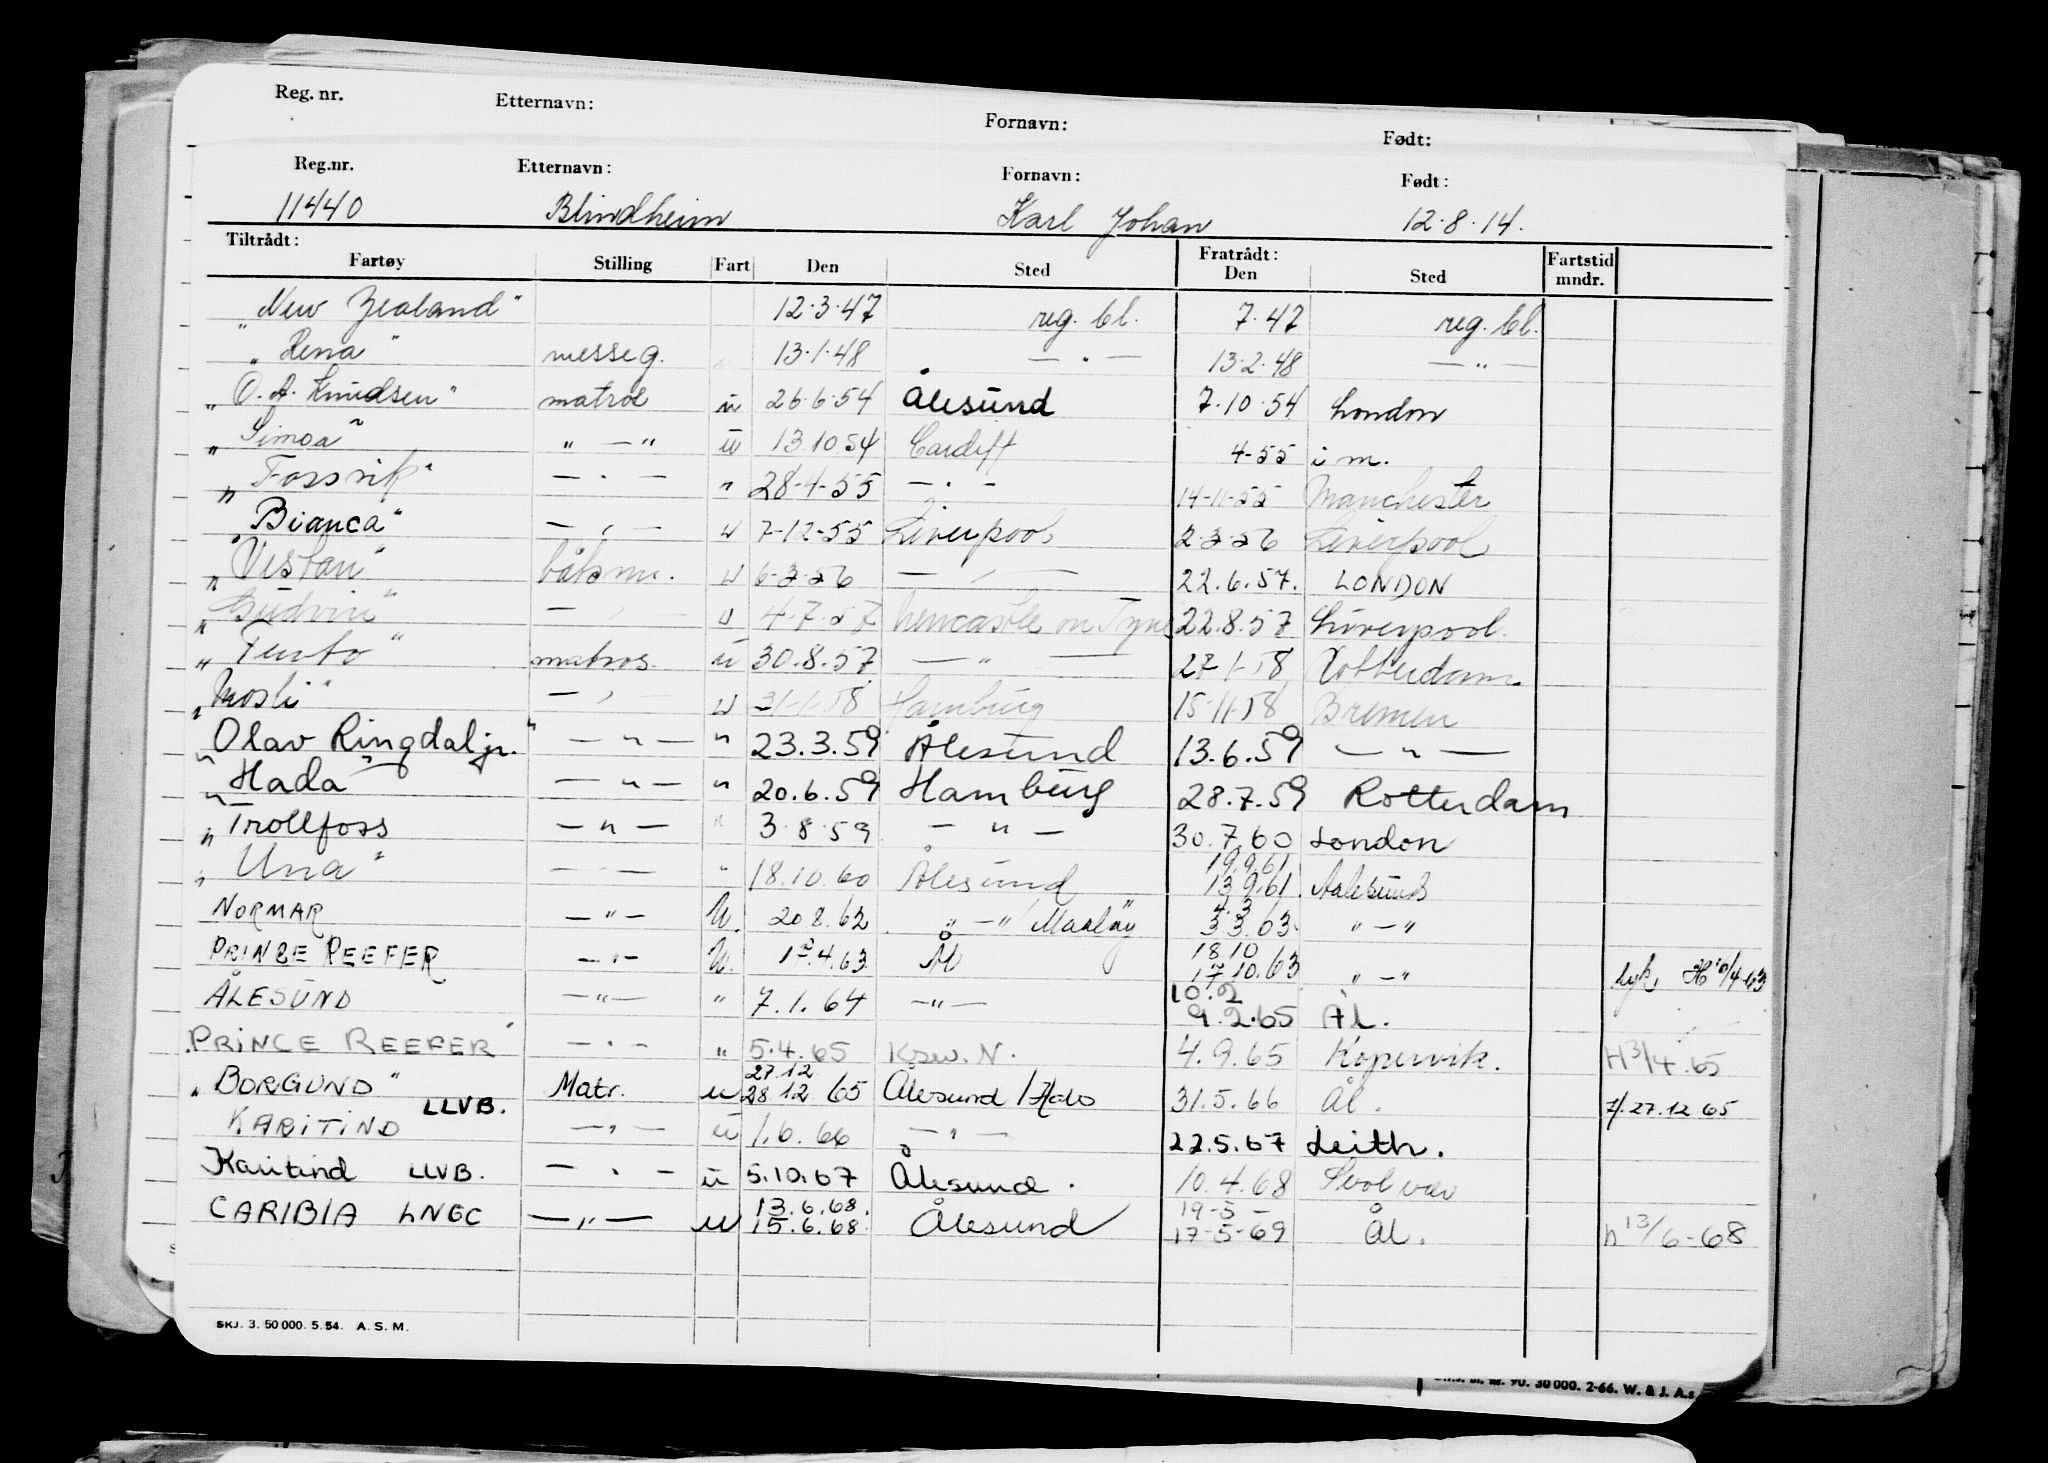 Reg. nr. Etternavn: Fornavn: Født:
Reg.nr. Etternavn: Fornavn: Født:
11440 Blindheim Karl Johan 12.8.14.
Tiltrådt: Fratrådt:
Fartøy Stilling Fart Den Sted Den Sted Fartstid mndr.
"New Zealand" 12.3.47 reg. bl. 7.47 reg. bl.
"Rena" messeg. 13.1.48 — " — 13.2.48 — " —
"O. A. Knudsen" matros u 26.6.54 Ålesund 7.10.54 London
"Simoa" " — " u 13.10.54 Cardiff 4-55 i m.
"Fossvik" — " — " 28-4-55 — " — 14-11-55 Manchester
"Bianca" — " — u 7-12-55 Liverpool 2-3-56 Liverpool
"Vestan" båtsm. u 6-3-56 — " — 22.6.57. LONDON
"Gudvin" — " — u 4-7-57 Newcastle on Tyne 22.8.57 Liverpool.
"Tento" matros. u 30.8.57 — " — 27-1-58 Rotterdam
"Mosli" — " — u 31-1-58 Hamburg 15-11-58 Bremen
"Olav Ringdal jr." — " — " 23.3.59 Ålesund 13.6.59 — " —
"Hada" — " — " 20.6.59 Hamburg 28.7.59 Rotterdam
"Trollfoss — " — " 3.8.59 — " — 30.7.60 London
19.9.61
"Una" — " — " 18.10.60 Ålesund 13.9.61 Aalesund
4.3
NORMAR — " — U. 20.8.62 " — " Maaløy 3.3.63. " — "
18.10
PRINSE REEFER — " — U. 1.4.63 Ål 17.10.63 " — " H 10/4-63
10.2
ÅLESUND — " — " 7.1.64 — " — 9.2.65 Ål.
PRINCE REEFER — " — " 5.4.65 Krsv. N. 4.9.65 Kopervik. H 3/4.65
27.12
"BORGUND" Matr. u 28.12.65 Ålesund / 31.5.66 Ål. 27.12.65
KARITIND LLVB. — " — u 1.6.66 — " — 22.5.67 Leith.
Karitind LLVB. — " — u 5.10.67 Ålesund. 10.4.68 Svolvær
13.6.68. 19-5-
CARIBIA LNGC — " — u 15.6.68 Ålesund 17-5-69 Ål. h 13/6-68
SKJ. 3. 50 000. 5. 54. A. S. M.
90. 30 000. 2-66. W. & J. A.s